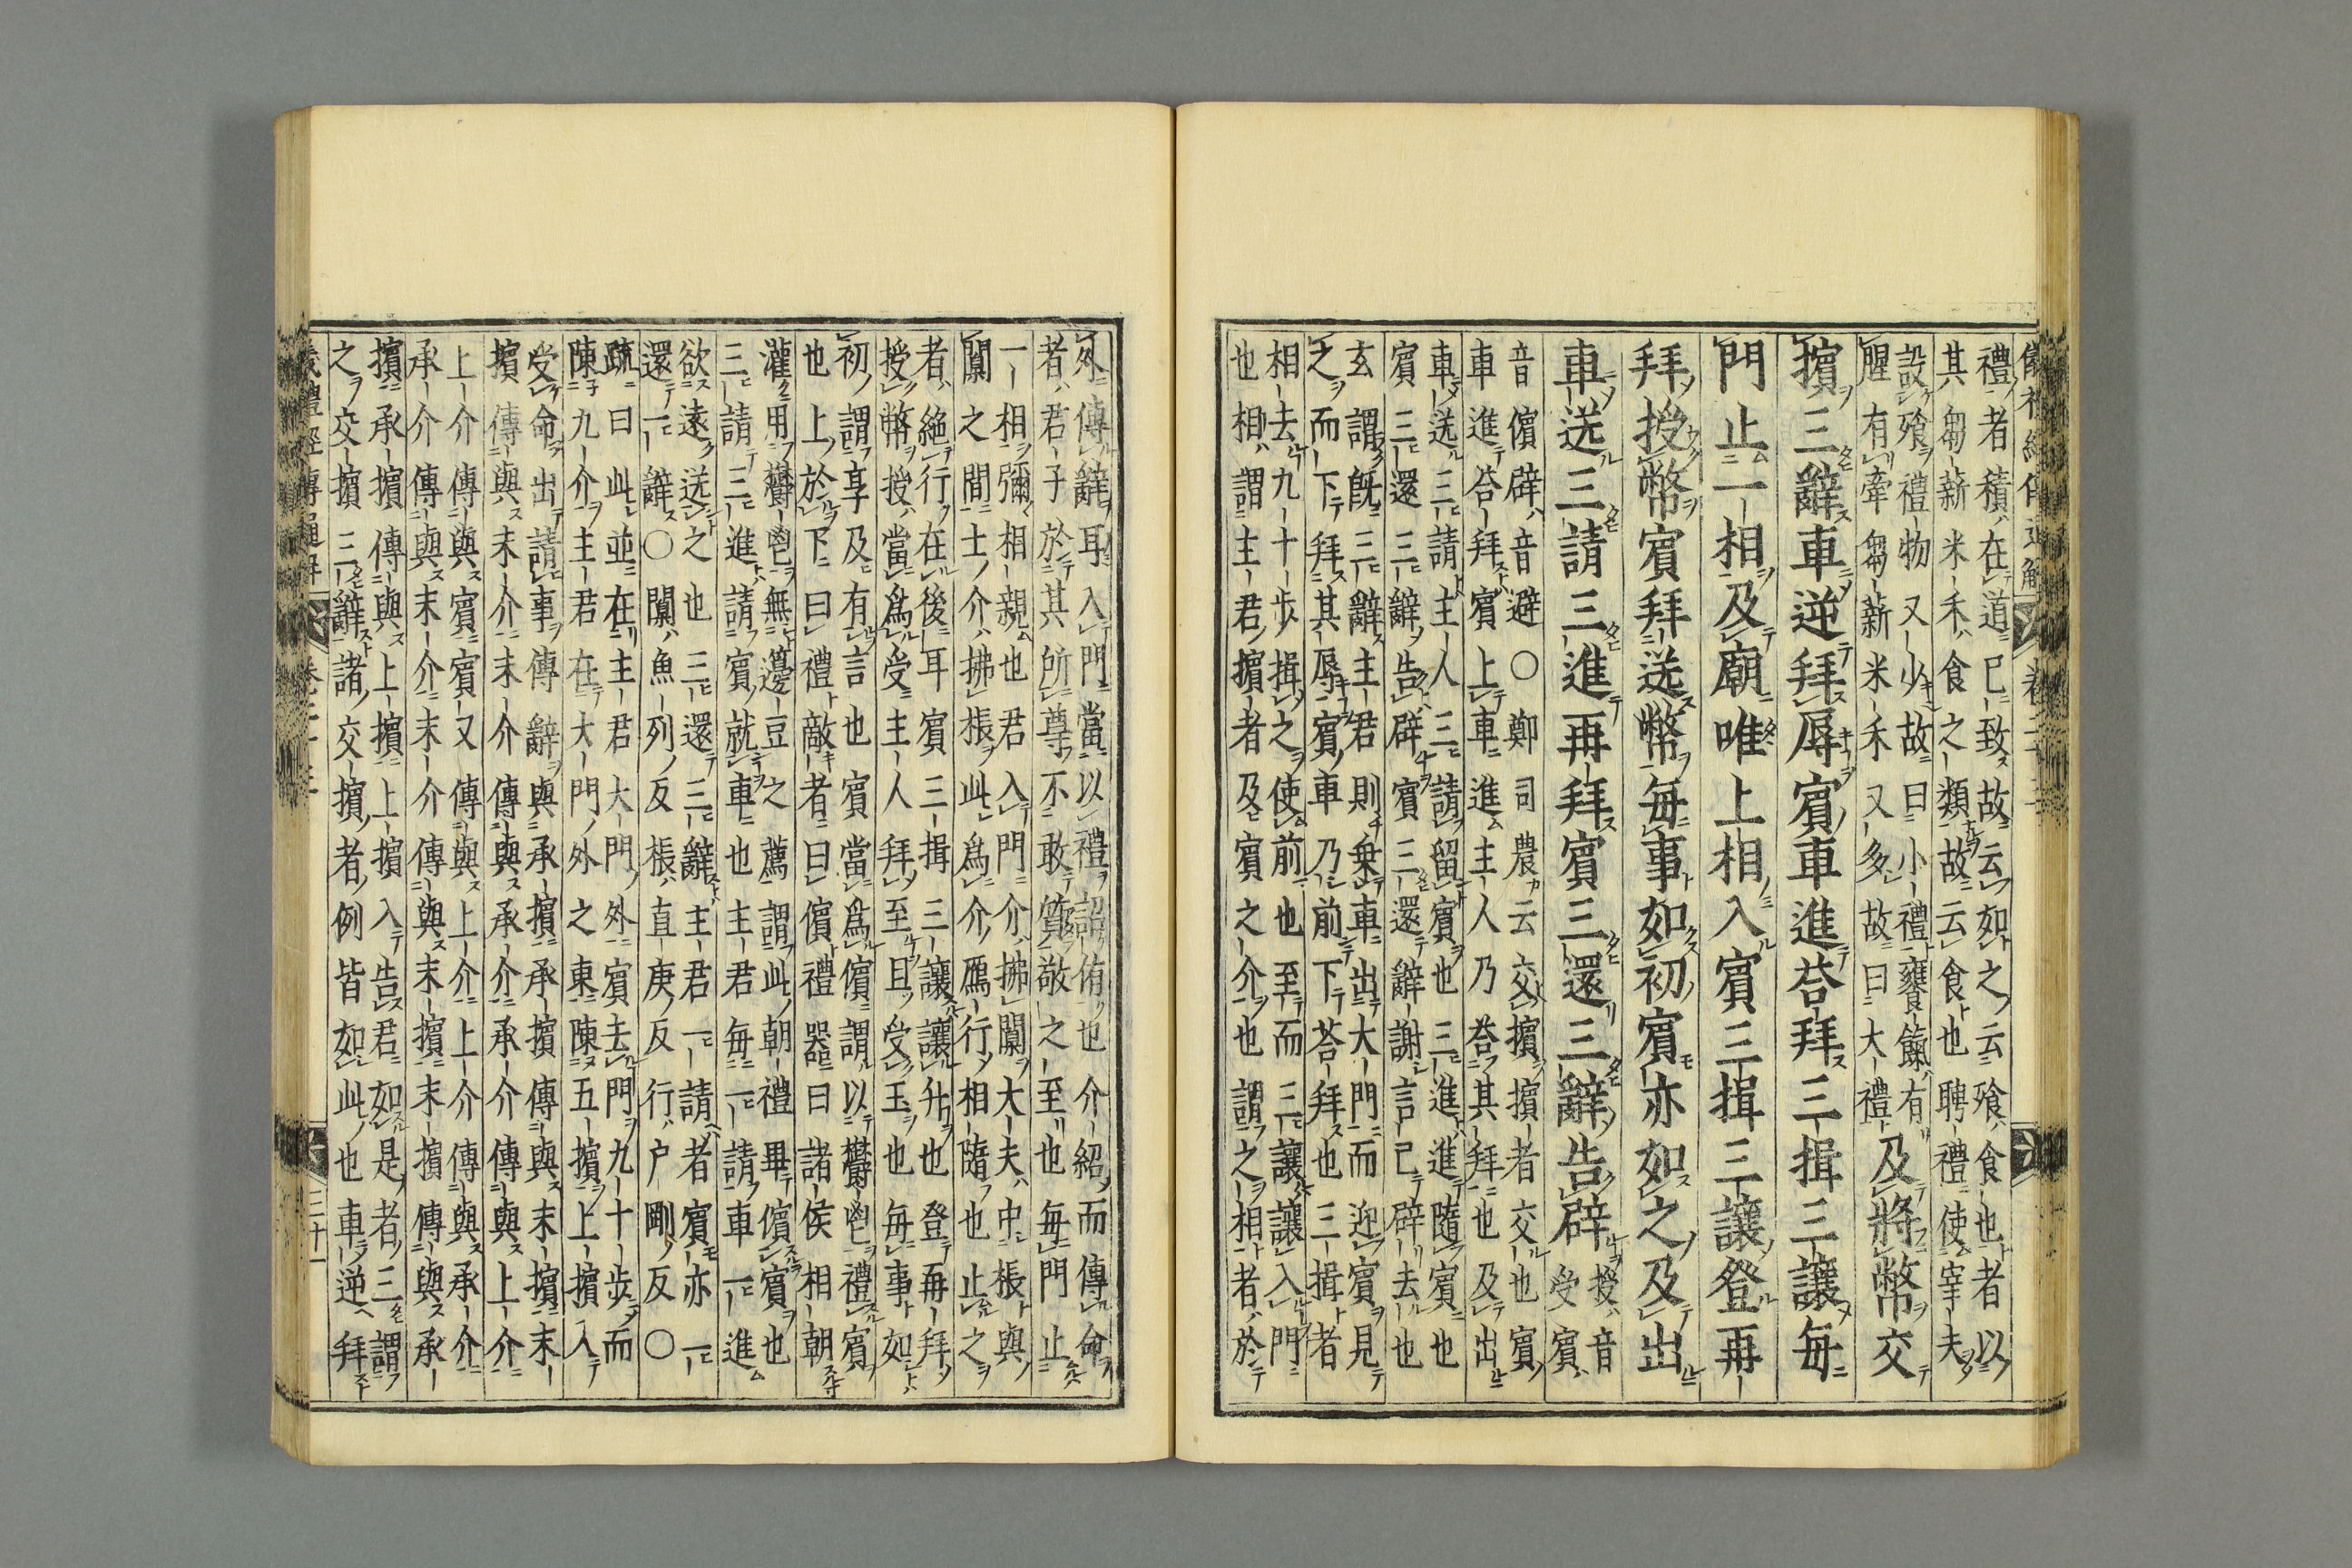 禮者積在道已致故云如之云飧食也者以
其芻薪米禾食之類故云食也聘禮使宰夫
設飧禮物又少故曰小禮饔餼有
腥有牽芻薪米禾又多故曰大禮
及將幣交
擯三辭車逆拜辱賓車進荅拜三揖三讓每
門止一相及廟唯上相入賓三揖三讓登再
拜授幣賓拜送幣每事如初賓亦如之及出
車送三請三進再拜賓三還三辭告辟
授音
受賓
音儐辟音避〇鄭司農云交擯擯者交也賓
車進荅拜賓上車進主人乃荅其拜也及出
車送三請主人三請留賓也三進進隨賓也
賓三還三辭告辟賓三還辭謝言已辟去也
玄謂旣三辭主君則乗車出大門而迎賓見
之而下拜其辱賓車乃前下荅拜也三揖者
相去九十步揖之使前也至而三讓讓入門
也相謂主君擯者及賓之介也謂之相者於
外傳辭耳入門當以禮詔侑也介紹而傳命
者君子於其所尊不敢質敬之至也每門止
一相彌相親也君入門介拂闑大夫中棖與
闑之間士介拂棖此爲介鴈行相隨也止之
者絶行在後耳賓三揖三讓讓升也登再拜
授幣授當爲受主人拜至且受玉也每事如
初謂享及有言也賓當爲儐謂以鬱鬯禮賓
也上於下曰禮敵者曰儐禮器曰諸侯相朝
灌用鬱鬯無籩豆之薦謂此朝禮畢儐賓也
三請三進請賓就車也主君每一請車一進
欲遠送之也三還三辭主君一請者賓亦一
還一辭〇闑魚列反棖直庚反行户剛反〇
疏曰此並在主君大門外賓去門九十步而
陳九介主君在大門外之東陳五擯上擯入
受命出請事傳辭與承擯承擯傳與末擯末
擯傳與末介末介傳與承介承介傳與上介
上介傳與賓賓又傳與上介上介傳與承介
承介傳與末介末介傳與末擯末擯傳與承
擯承擯傳與上擯上擯入告君如是者三謂
之交擯三辭諸交擯者例皆如此也車逆拜
三十一